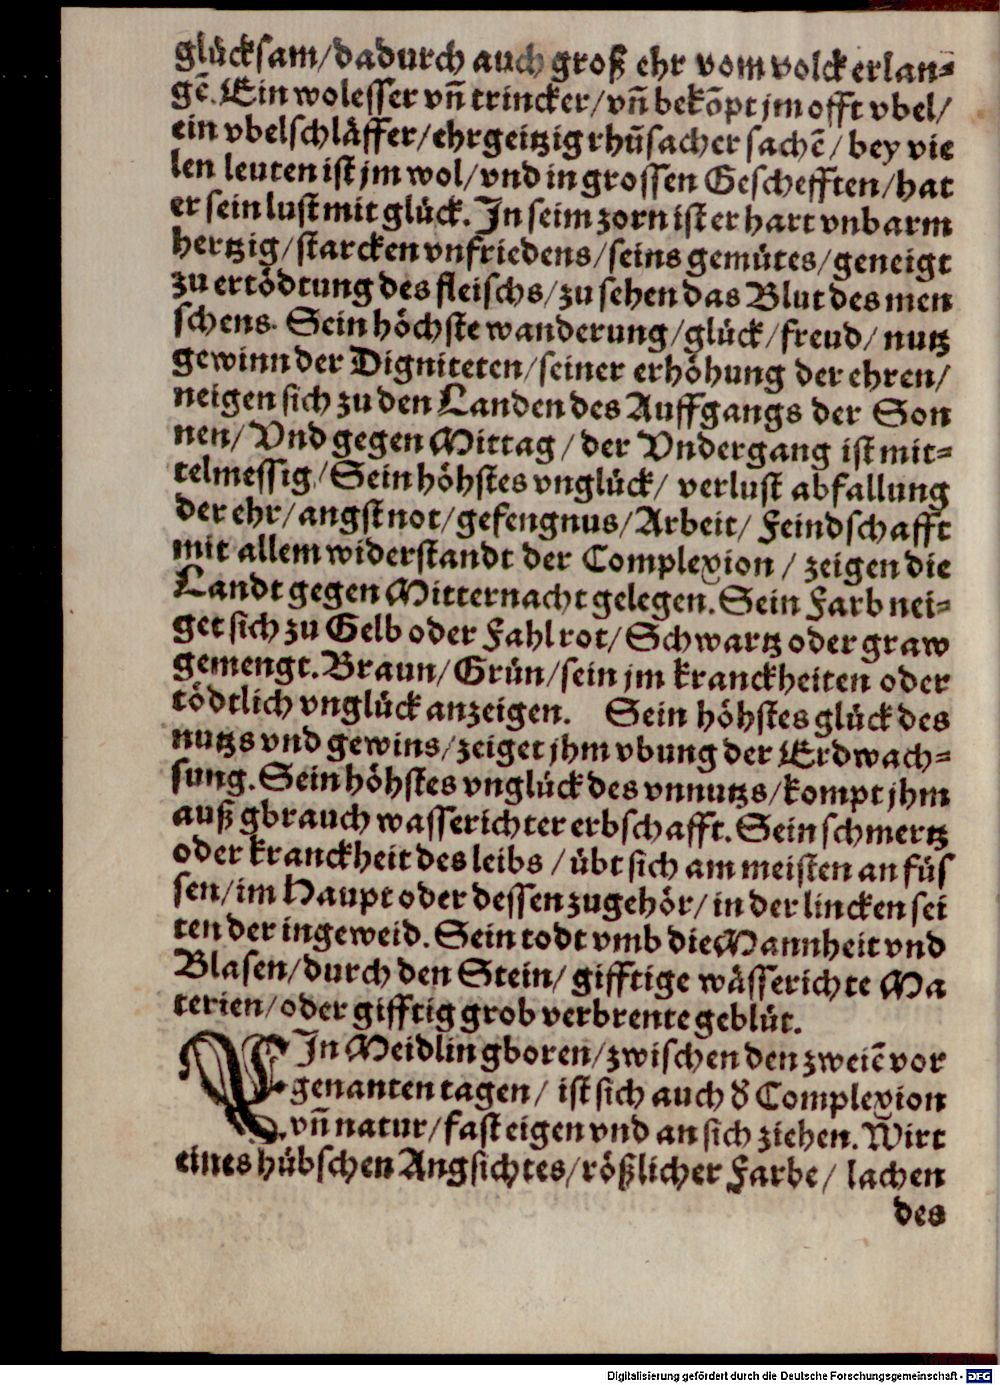 glücksam/dadurch auch groß ehr vom volck erlan-
gē. Ein wolesser vñ trincker/vñ bekōpt jm offt vbel/
ein vbelschläffer/ehrgeitzig rhůsacher sachē/ bey vie
len leuten ist jm wol/vnd in grossen Geschefften/hat
er sein lust mit glück. In seim zorn ist er hart vnbarm
hertzig/starcken vnfriedens/seins gemütes/geneigt
zu ertödtung des fleischs/zu sehen das Blut des men
schens. Sein höchste wanderung/glück/freud/ nutz
gewinn der Digniteten/seiner erhöhung der ehren/
neigen sich zu den Landen des Auffgangs der Son
nen/ Vnd gegen Mittag/ der Vndergang ist mit-
telmessig/Sein höhstes vnglück/ verlust abfallung
der ehr/angst not/gefengnus/Arbeit/ Feindschafft
mit allem widerstandt der Complexion/ zeigen die
Landt gegen Mitternacht gelegen. Sein Farb nei-
get sich zu Gelb oder Fahlrot/Schwartz oder graw
gemengt. Braun/Grün/sein jm kranckheiten oder
tödtlich vnglück anzeigen. Sein höhstes glück des
nutzs vnd gewins/zeiget jhm vbung der Erdwach-
sung. Sein höhstes vnglück des vnnutzs/kompt jhm
auß gbrauch wasserichter erbschafft. Sein schmertz
oder kranckheit des leibs/ übt sich am meisten an füs
sen/im Haupt oder dessen zugehör/in der lincken sei
ten der ingeweid. Sein todt vmb die Mannheit vnd
Blasen/durch den Stein/ gifftige wässerichte Ma
terien/oder gifftig grob verbrente geblüt.
EIn Meidlin gboren/zwischen den zweiē vor
genanten tagen/ ist sich auch d' Complexion
vñ natur/fast eigen vnd an sich ziehen. Wirt
eines hübschen Angsichtes/rößlicher Farbe/ lachen
des
Digitalisierung gefördert durch die Deutsche Forschungsgemeinschaft - DFG